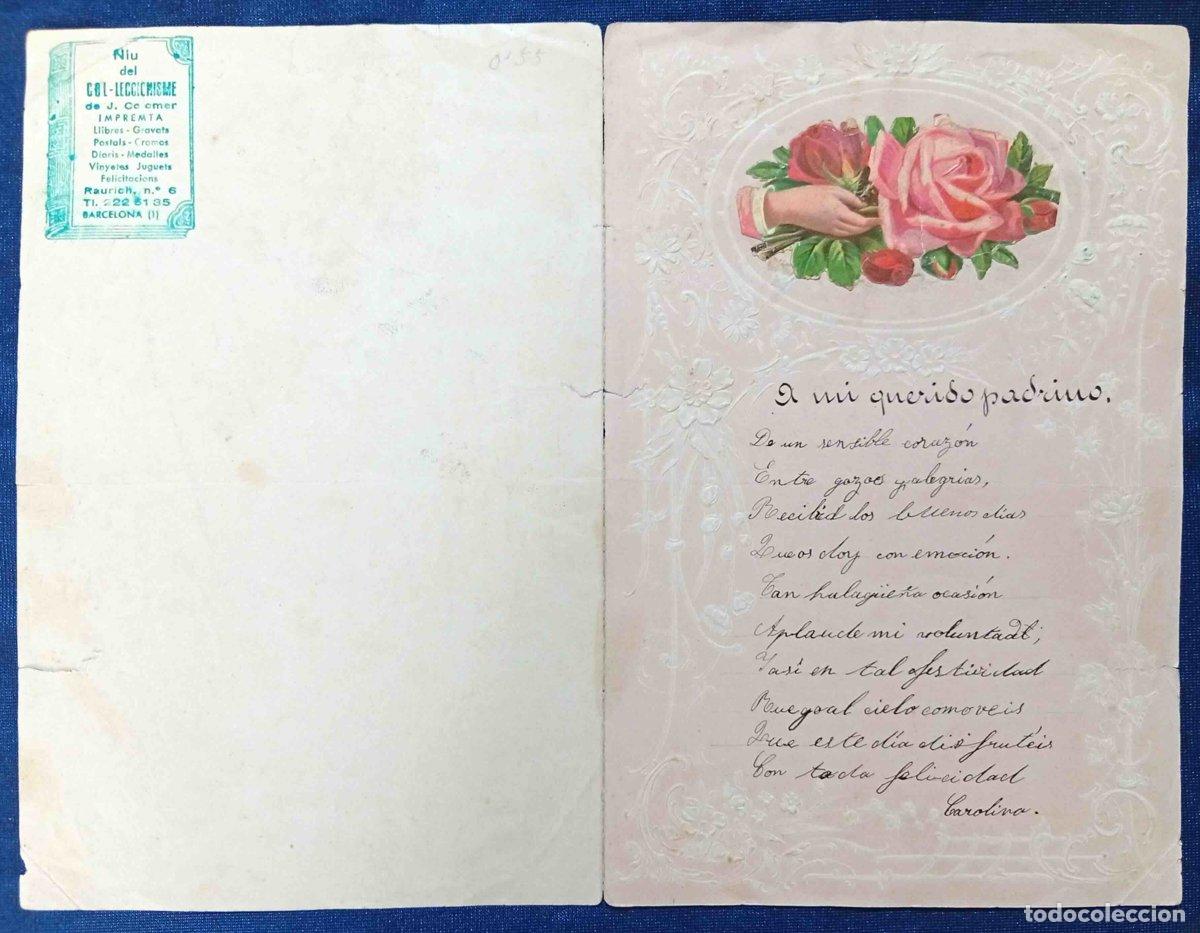 Niu
del
COL-LECCIONISME
de J. Colomer
IMPREMTA
Llibres - Gravats
Postals - Cromos
Diaris - Medalles
Vinyetes Juguets
Felicitacions
Raurich, n.º 6
Tl. 222 61 35
BARCELONA (1)
0'55
A mi querido padrino.
De un sensible corazón
Entre gozos y alegrias,
Recibid los buenos dias
Que os doy con emoción.
Tan halagüeña ocasión
Aplaude mi voluntad;
Y asi en tal festividad
Ruego al cielo como veis
Que este día disfrutéis
Con toda felicidad
Carolina.
todocoleccion